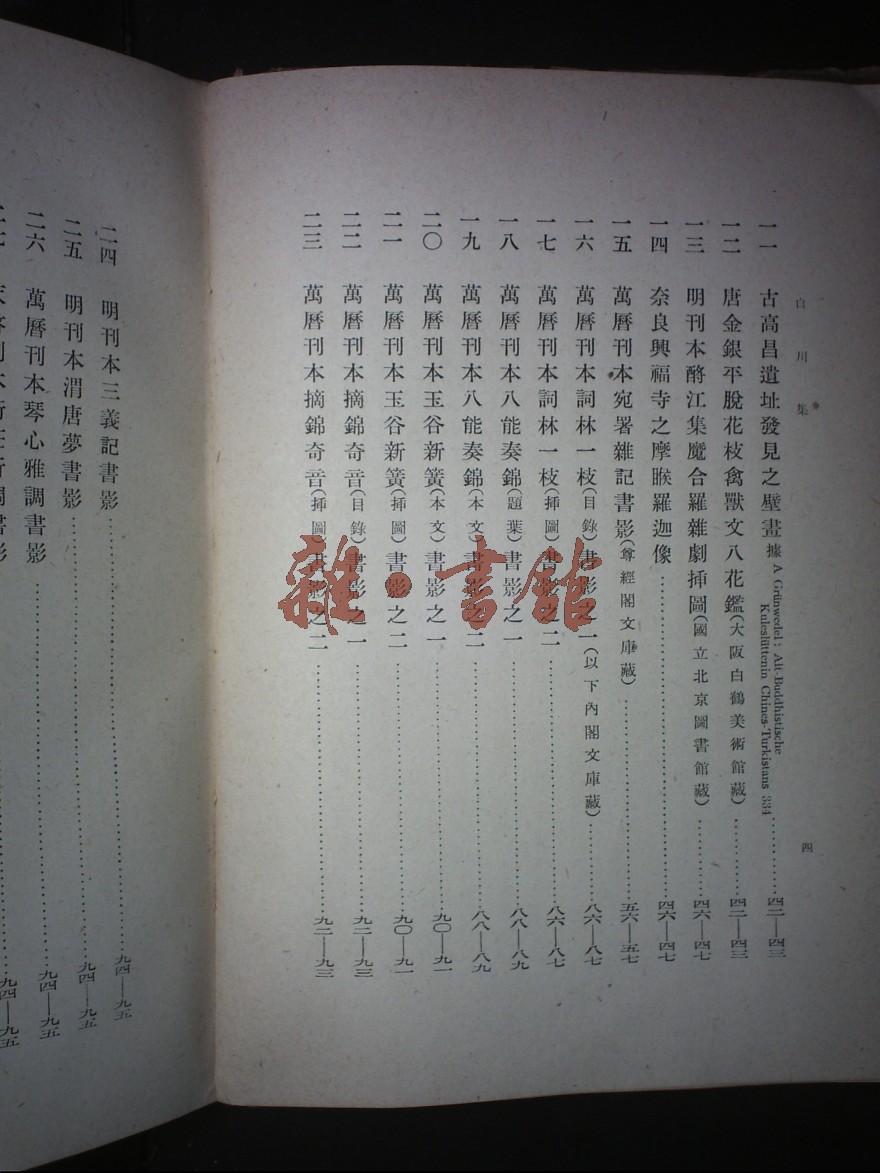 白川集
四
一一 古高昌遺址發見之壁畫 據 A Grünwedel: Alt-Buddhistische
Kuleslüttenin Chines-Turkistans 334…………四二—四三
一二 唐金銀平脫花枝禽獸文八花鑑(大阪白鶴美術館藏)…………四二—四三
一三 明刊本酹江集魔合羅雜劇挿圖(國立北京圖書館藏)…………四六—四七
一四 奈良興福寺之摩睺羅迦像…………四六—四七
一五 萬曆刊本宛署雜記書影(尊經閣文庫藏)…………五六—五七
一六 萬曆刊本詞林一枝(目錄)書影之一(以下內閣文庫藏)…………八六—八七
一七 萬曆刊本詞林一枝(挿圖)書影之二…………八六—八七
一八 萬曆刊本八能奏錦(題葉)書影之一…………八八—八九
一九 萬曆刊本八能奏錦(本文)書影之二…………八八—八九
二〇 萬曆刊本玉谷新簧(本文)書影之一…………九〇—九一
二一 萬曆刊本玉谷新簧(挿圖)書影之二…………九〇—九一
二二 萬曆刊本摘錦奇音(目錄)書影之一…………九二—九三
二三 萬曆刊本摘錦奇音(挿圖)書影之二…………九二—九三
二四 明刊本三義記書影…………九四—九五
二五 明刊本渭唐夢書影…………九四—九五
二六 萬曆刊本琴心雅調書影…………九四—九五
二七 刊本新調書影…………九四—九五
雜·書館